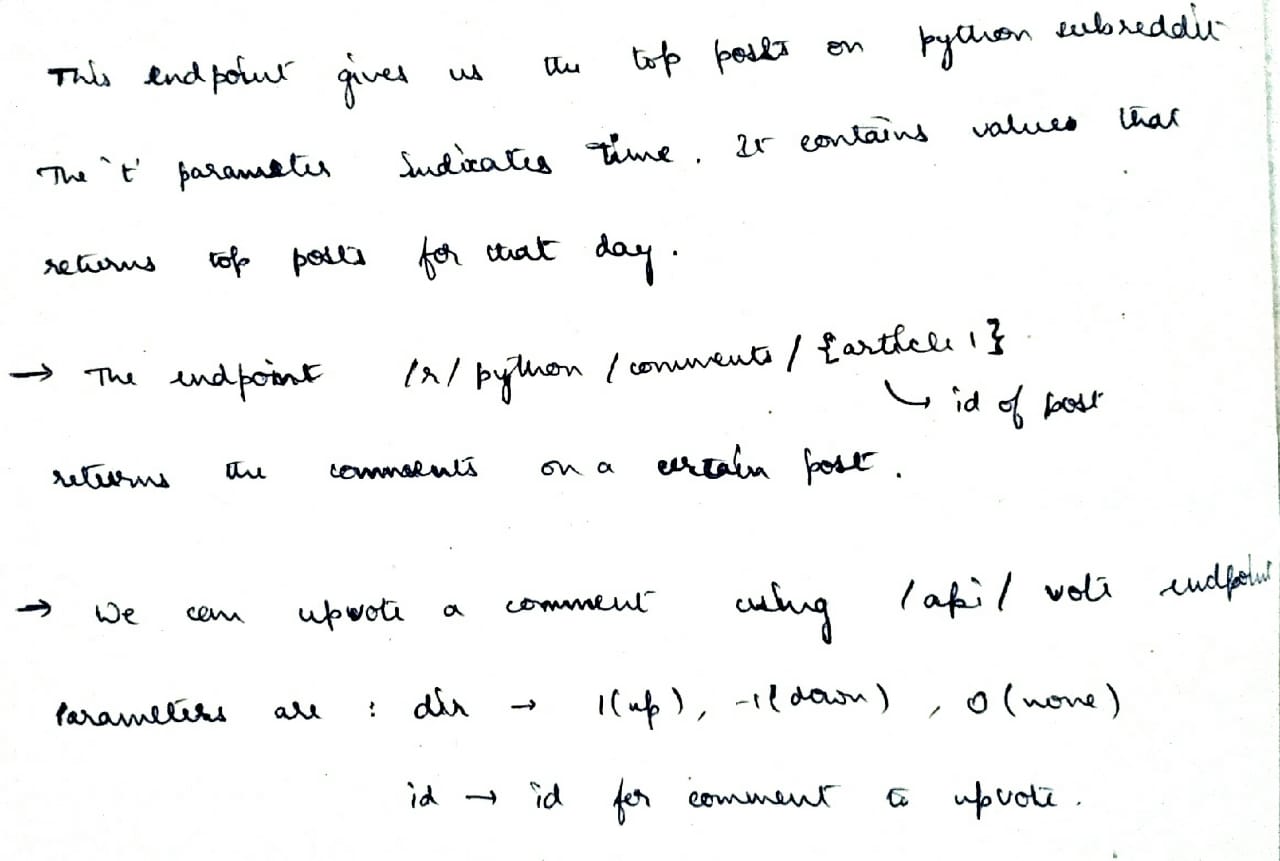 This endpoint gives us the top posts on python subreddit
The 't' parameter indicates time. It contains values that
returns top posts for that day.
→ The endpoint /r/python/comments/{article1}
↳ id of post
returns the comments on a certain post.
→ We can upvote a comment using /api/vote endpoint
Parameters are : dir → 1(up), -1(down), 0(none)
id → id for comment to upvote.